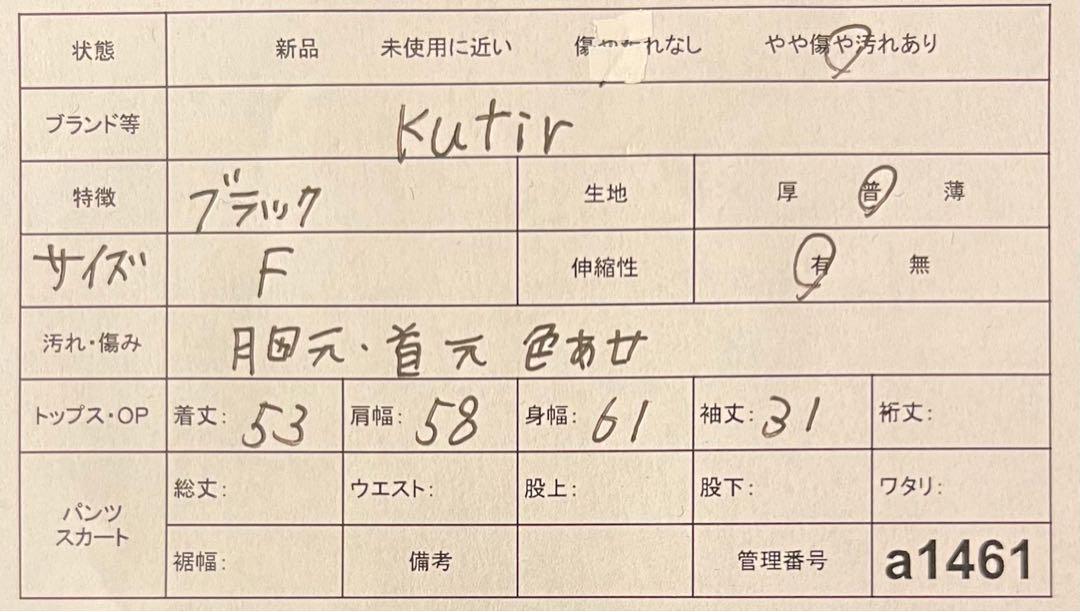 状態 新品 未使用に近い 傷や汚れなし やや傷や汚れあり
ブランド等 Kutir
特徴 ブラック 生地 厚 普 薄
サイズ F 伸縮性 有 無
汚れ・傷み 胸元・首元 色あせ
トップス・OP 着丈: 53 肩幅: 58 身幅: 61 袖丈: 31 裄丈:
パンツ
スカート
総丈: ウエスト: 股上: 股下: ワタリ:
裾幅: 備考 管理番号 a1461